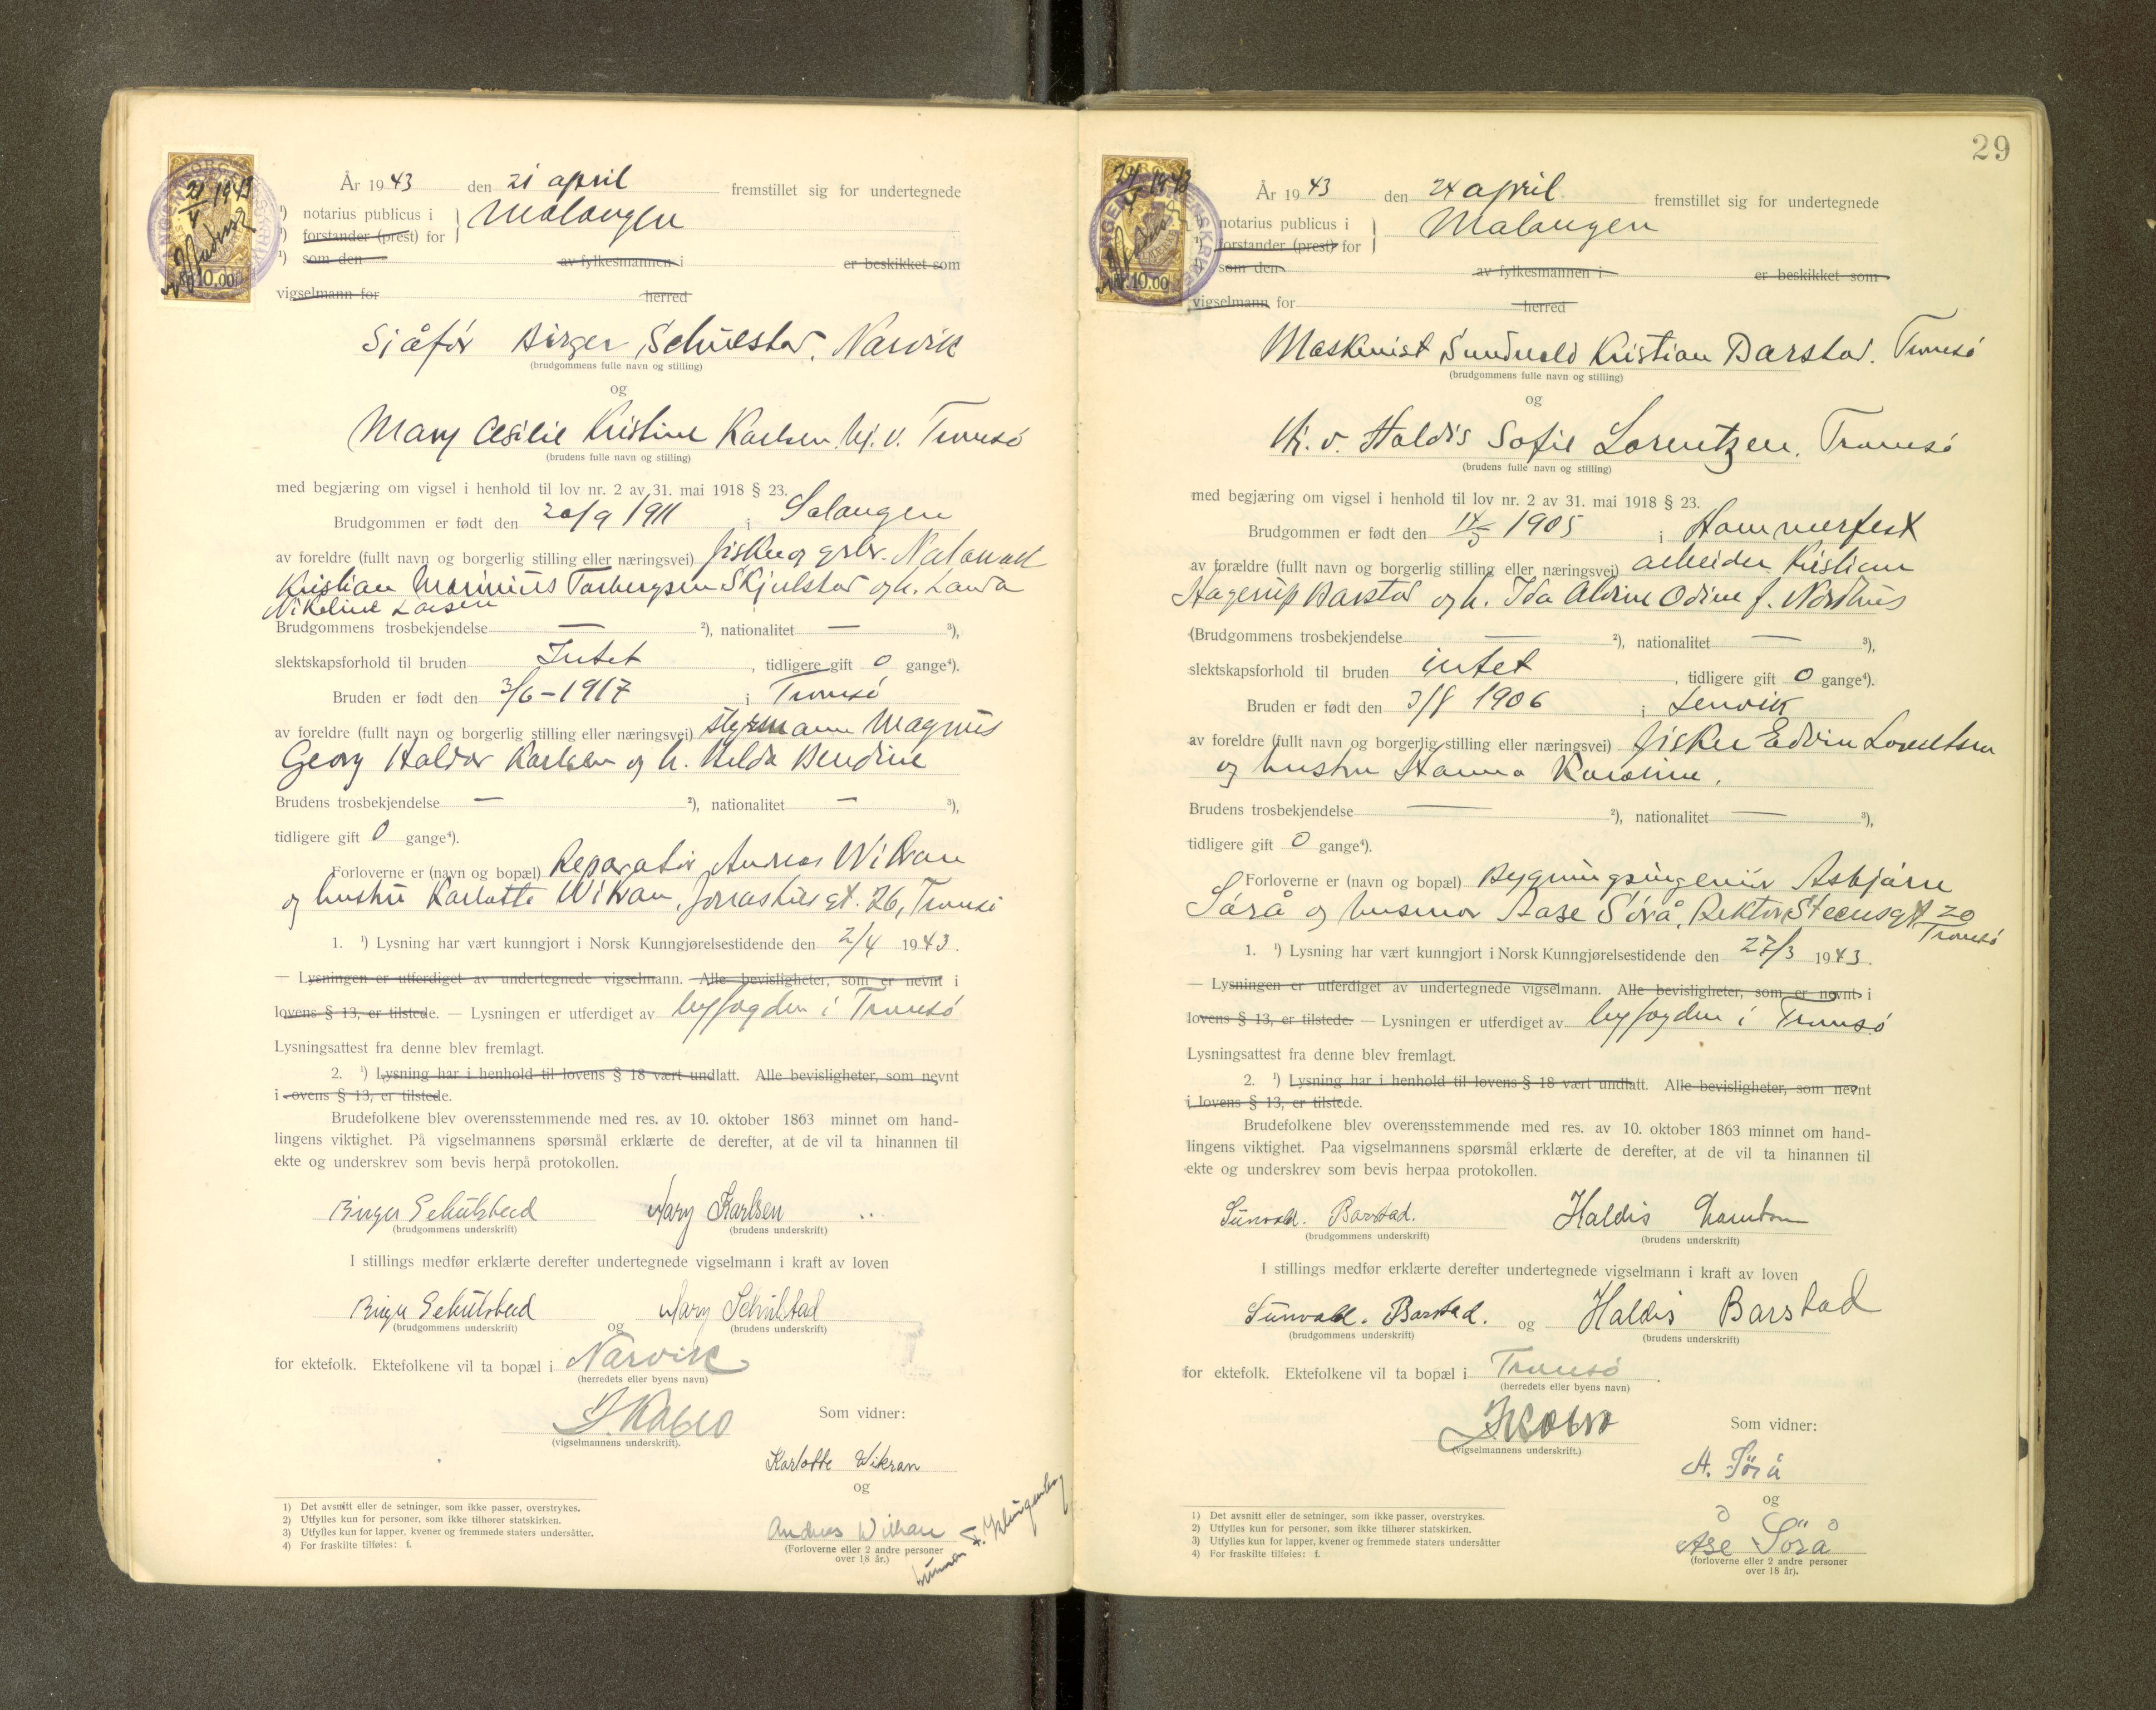 År 1943 den 21 april fremstillet sig for undertegnede
¹) notarius publicus i
¹) forstander (prest) for
Malangen
¹) som den av fylkesmannen i er beskikket som
vigselmann for herred
21/4 1943
10.00
Sjåfør Birger Schulstad, Narvik
(brudgommens fulle navn og stilling)
og
Mary Cesilie Kristine Karlsen, Tromsö
(brudens fulle navn og stilling)
med begjæring om vigsel i henhold til lov nr. 2 av 31. mai 1918 § 23.
Brudgommen er født den 20/9 1911 i Salangen
av foreldre (fullt navn og borgerlig stilling eller næringsvei) fisker og grbr.
Kristian Marinius Torbergsen Skjulstad og h. Laura
Nikoline Larsen
Brudgommens trosbekjendelse — ²), nationalitet — ³),
slektskapsforhold til bruden Intet, tidligere gift 0 gange⁴).
Bruden er født den 3/6 - 1917 i Tromsö
av foreldre (fullt navn og borgerlig stilling eller næringsvei) styrmann Magnus
Georg Haldor Karlsen og h. Hilda Bendine
Brudens trosbekjendelse — ²), nationalitet — ³),
tidligere gift 0 gange⁴).
Forloverne er (navn og bopæl) Reparatör Andreas Wikran
og hustru Karlotte Wikran, 26, Tromsö
1. ¹) Lysning har vært kunngjort i Norsk Kunngjørelsestidende den 2/4 1943.
— Lysningen er utferdiget av undertegnede vigselmann. Alle bevisligheter, som er nevnt i
lovens § 13, er tilstede. — Lysningen er utferdiget av byfogden i Tromsö
Lysningsattest fra denne blev fremlagt.
2. ¹) Lysning har i henhold til lovens § 18 vært undlatt. Alle bevisligheter, som nevnt
i lovens § 13, er tilstede.
Brudefolkene blev overensstemmende med res. av 10. oktober 1863 minnet om hand-
lingens viktighet. På vigselmannens spørsmål erklærte de derefter, at de vil ta hinannen til
ekte og underskrev som bevis herpå protokollen.
Birger Schulstad Mary Karlsen
(brudgommens underskrift) (brudens underskrift)
I stillings medfør erklærte derefter undertegnede vigselmann i kraft av loven
Birger Schulstad og Mary Schulstad
(brudgommens underskrift) (brudens underskrift)
for ektefolk. Ektefolkene vil ta bopæl i Narvik
(herredets eller byens navn)
(vigselmannens underskrift).
Som vidner:
Karlotte Wikran
og
Andreas Wikran
(Forloverne eller 2 andre personer
over 18 år.)
1) Det avsnitt eller de setninger, som ikke passer, overstrykes.
2) Utfylles kun for personer, som ikke tilhører statskirken.
3) Utfylles kun for lapper, kvener og fremmede staters undersåtter.
4) For fraskilte tilføies: f.
29
År 1943 den 24 april fremstillet sig for undertegnede
notarius publicus i
¹) forstander (prest) for
Malangen
som den av fylkesmannen i er beskikket som
vigselmann for herred
24/4 1943
10.00
Maskinist Sundvald Kristian Barstad. Tromsö
(brudgommens fulle navn og stilling)
og
Haldis Sofie Lorentzen. Tromsö
(brudens fulle navn og stilling)
med begjæring om vigsel i henhold til lov nr. 2 av 31. mai 1918 § 23.
Brudgommen er født den 14/5 1905 i Hammerfest
av forældre (fullt navn og borgerlig stilling eller næringsvei) arbeider Kristian
Hagerup Barstad og h. Ida Alvine Odine f. Nordhus
(Brudgommens trosbekjendelse — ²), nationalitet — ³),
slektskapsforhold til bruden intet, tidligere gift 0 gange⁴).
Bruden er født den 3/8 1906 i Lenvik
av foreldre (fullt navn og borgerlig stilling eller næringsvei) fisker Edvin Lorentsen
og hustru Hanna Karoline.
Brudens trosbekjendelse — ²), nationalitet — ³),
tidligere gift 0 gange⁴).
Forloverne er (navn og bopæl) Bygningsingeniör Asbjörn
Sörå og husmor Aase Sörå, Rektor Steensgt 20
Tromsö
1. ¹) Lysning har vært kunngjort i Norsk Kunngjørelsestidende den 27/3 1943.
— Lysningen er utferdiget av undertegnede vigselmann. Alle bevisligheter, som er nevnt i
lovens § 13, er tilstede. — Lysningen er utferdiget av byfogden i Tromsö
Lysningsattest fra denne blev fremlagt.
2. ¹) Lysning har i henhold til lovens § 18 vært undlatt. Alle bevisligheter, som nevnt
i lovens § 13, er tilstede.
Brudefolkene blev overensstemmende med res. av 10. oktober 1863 minnet om hand-
lingens viktighet. Paa vigselmannens spørsmål erklærte de derefter, at de vil ta hinannen til
ekte og underskrev som bevis herpaa protokollen.
Sunvald. Barstad. Haldis
(brudgommens underskrift) (brudens underskrift)
I stillings medfør erklærte derefter undertegnede vigselmann i kraft av loven
Sunvald. Barstad. og Haldis Barstad
(brudgommens underskrift) (brudens underskrift)
for ektefolk. Ektefolkene vil ta bopæl i Tromsö.
(herredets eller byens navn)
(vigselmannens underskrift.)
Som vidner:
A. Sörå
og
Åse Sörå
(forloverne eller 2 andre personer
over 18 år).
1) Det avsnitt eller de setninger, som ikke passer, overstrykes.
2) Utfylles kun for personer, som ikke tilhører statskirken.
3) Utfylles kun for lapper, kvener og fremmede staters undersåtter
4) For fraskilte tilføies: f.